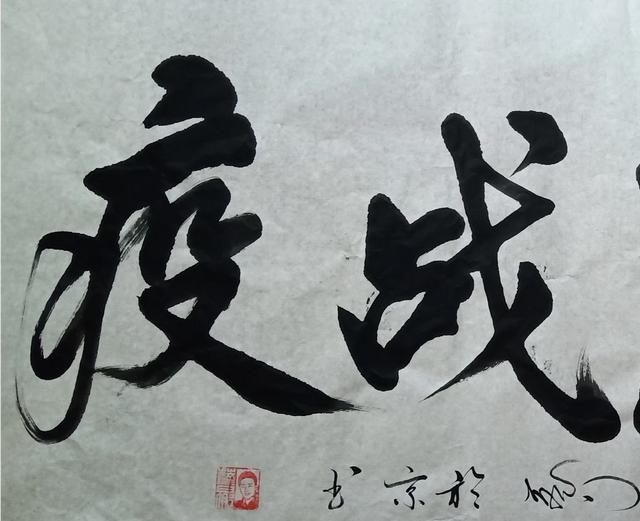 战疫
於京书